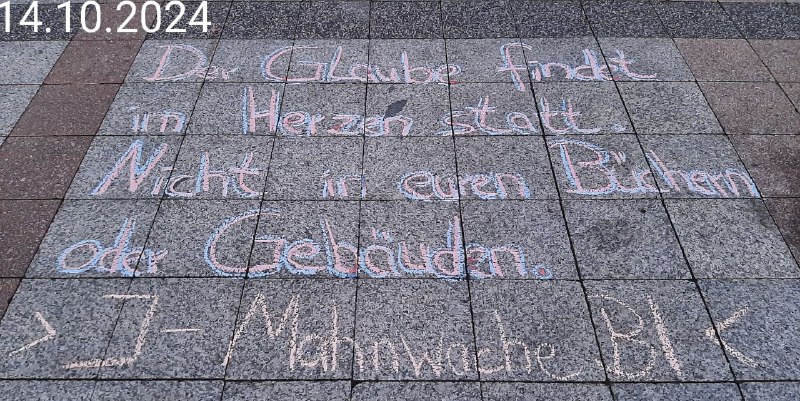 14.10.2024
Der Glaube findet
im Herzen statt.
Nicht in euren Büchern
oder Gebäuden.
>J-Mahnwache BI<